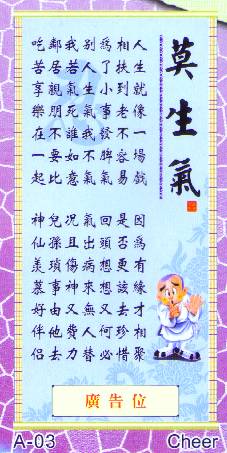 莫生氣
人生就像一場戲 因為有緣才相聚
相扶到老不容易 是否更該去珍惜
為了小事發脾氣 回頭想想又何必
別人生氣我不氣 氣出病來無人替
我若氣死誰如意 況且傷神又費力
鄰居親朋不要比 兒孫瑣事由他去
吃苦享樂在一起 神仙羨慕好伴侶
廣告位
A-03
Cheer